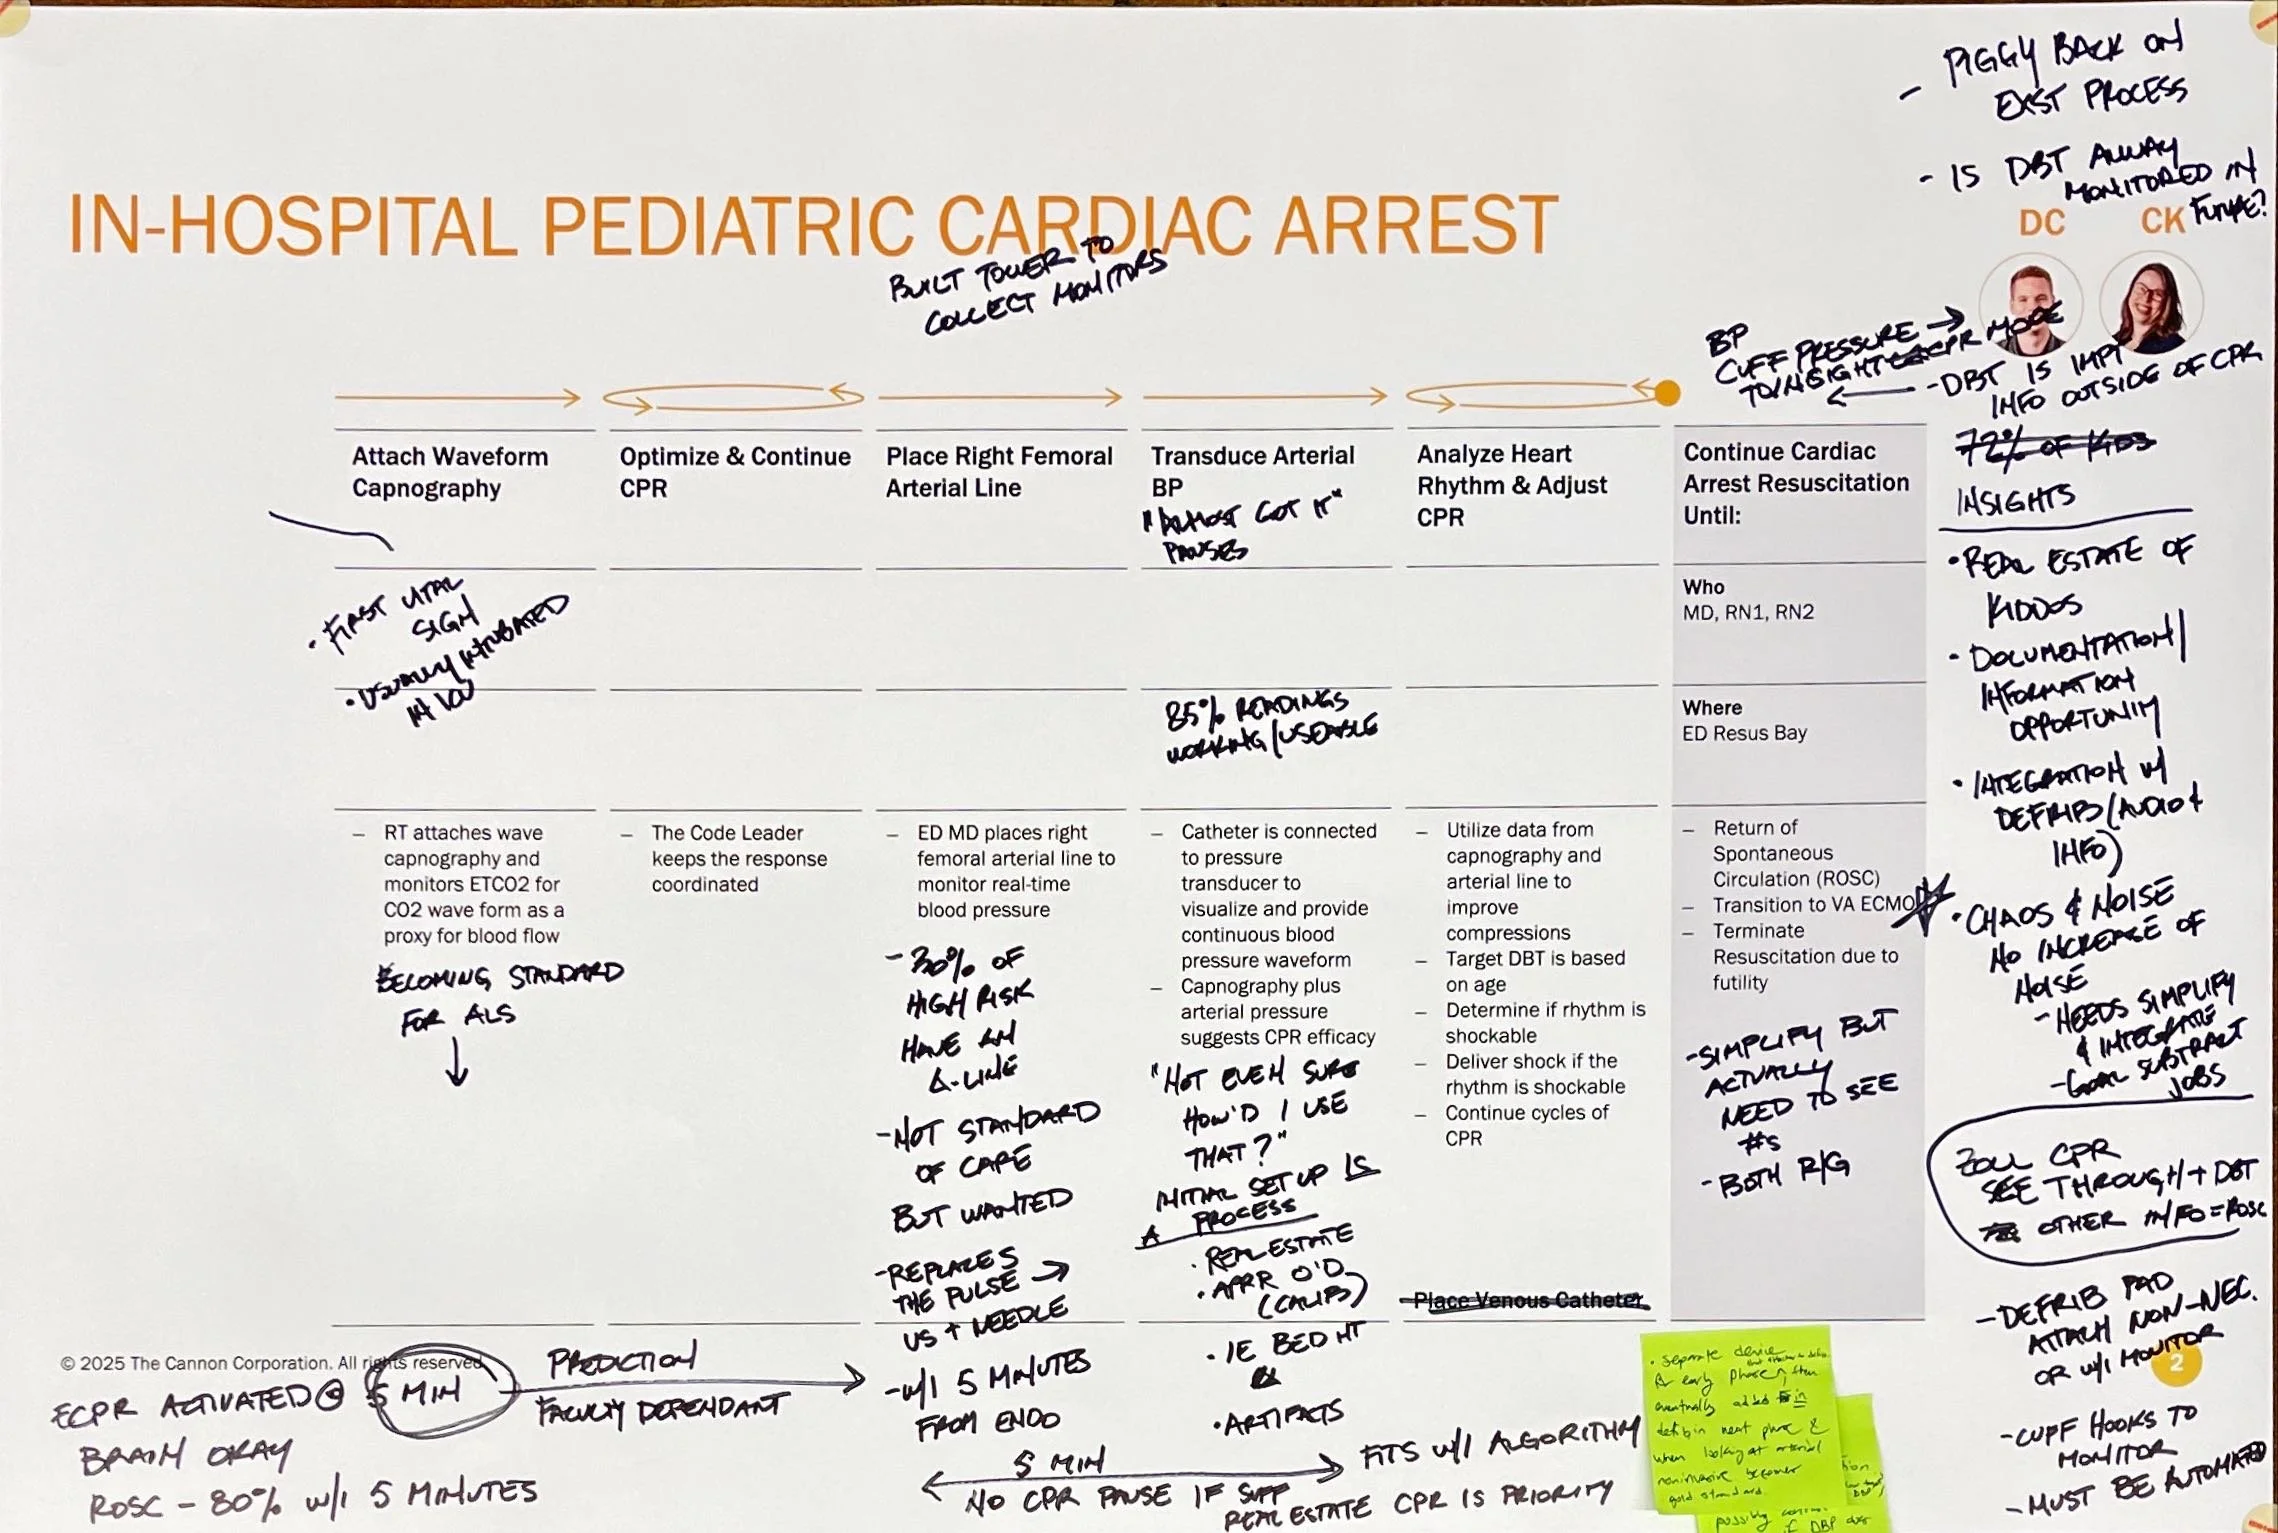 - PIGGY BACK ON
EXIST PROCESS
- IS DBT ALWAY
MONITORED IN
FUTURE?
IN-HOSPITAL PEDIATRIC CARDIAC ARREST
DC CK
BUILT TOWER TO
COLLECT MONITORS
BP
CUFF PRESSURE →
TO/INSIGHT CPR MODE
- DBT IS IMPT
INFO OUTSIDE OF CPR
72% OF KIDS
INSIGHTS
• REAL ESTATE OF
KIDDOS
• DOCUMENTATION/
INFORMATION
OPPORTUNITY
• INTEGRATION W/
DEFRIB (AUDIO &
INFO)
• CHAOS & NOISE
NO INCREASE OF
NOISE
- NEEDS SIMPLIFY
& INTEGRATE
- GOAL SUBTRACT
JOBS
ZOLL CPR
SEE THROUGH + DBT
OTHER INFO = ROSC
- DEFRIB PAD
ATTACH NON-NEC.
OR W/I MONITOR
- CUFF HOOKS TO
MONITOR
- MUST BE AUTOMATED
Attach Waveform
Capnography
• FIRST VITAL
SIGN
• USUALLY INTUBATED
IN ICU
– RT attaches wave
capnography and
monitors ETCO2 for
CO2 wave form as a
proxy for blood flow
BECOMING STANDARD
FOR ALS
Optimize & Continue
CPR
– The Code Leader
keeps the response
coordinated
Place Right Femoral
Arterial Line
– ED MD places right
femoral arterial line to
monitor real-time
blood pressure
- 30% OF
HIGH RISK
HAVE AN
A-LINE
- NOT STANDARD
OF CARE
BUT WANTED
- REPLACES
THE PULSE →
US + NEEDLE
- W/I 5 MINUTES
FROM ENDO
Transduce Arterial
BP
"ALMOST GOT IT"
PAUSES
85% READINGS
WORKING/USEABLE
– Catheter is connected
to pressure
transducer to
visualize and provide
continuous blood
pressure waveform
– Capnography plus
arterial pressure
suggests CPR efficacy
"NOT EVEN SURE
HOW'D I USE
THAT?"
INITIAL SET UP IS
A PROCESS
• REAL ESTATE
• APRR O'D
(CALIB)
• IE BED HT
• ARTIFACTS
Analyze Heart
Rhythm & Adjust
CPR
– Utilize data from
capnography and
arterial line to
improve
compressions
– Target DBT is based
on age
– Determine if rhythm is
shockable
– Deliver shock if the
rhythm is shockable
– Continue cycles of
CPR
Place Venous Catheter
Continue Cardiac
Arrest Resuscitation
Until:
Who
MD, RN1, RN2
Where
ED Resus Bay
– Return of
Spontaneous
Circulation (ROSC)
– Transition to VA ECMO
– Terminate
Resuscitation due to
futility
- SIMPLIFY BUT
ACTUALLY
NEED TO SEE
#s
- BOTH R/G
© 2025 The Cannon Corporation. All rights reserved
2
ECPR ACTIVATED @ 5 MIN
PREDICTION
FACULTY DEPENDANT
BRAIN OKAY
ROSC - 80% W/I 5 MINUTES
5 MIN
NO CPR PAUSE IF SUFF
REAL ESTATE CPR IS PRIORITY
FITS W/I ALGORITHM
• separate device
early phase, then
eventually added in
defib in next phase &
when looking at arterial
noninvasive becomes
gold standard.
possibly
if DBP